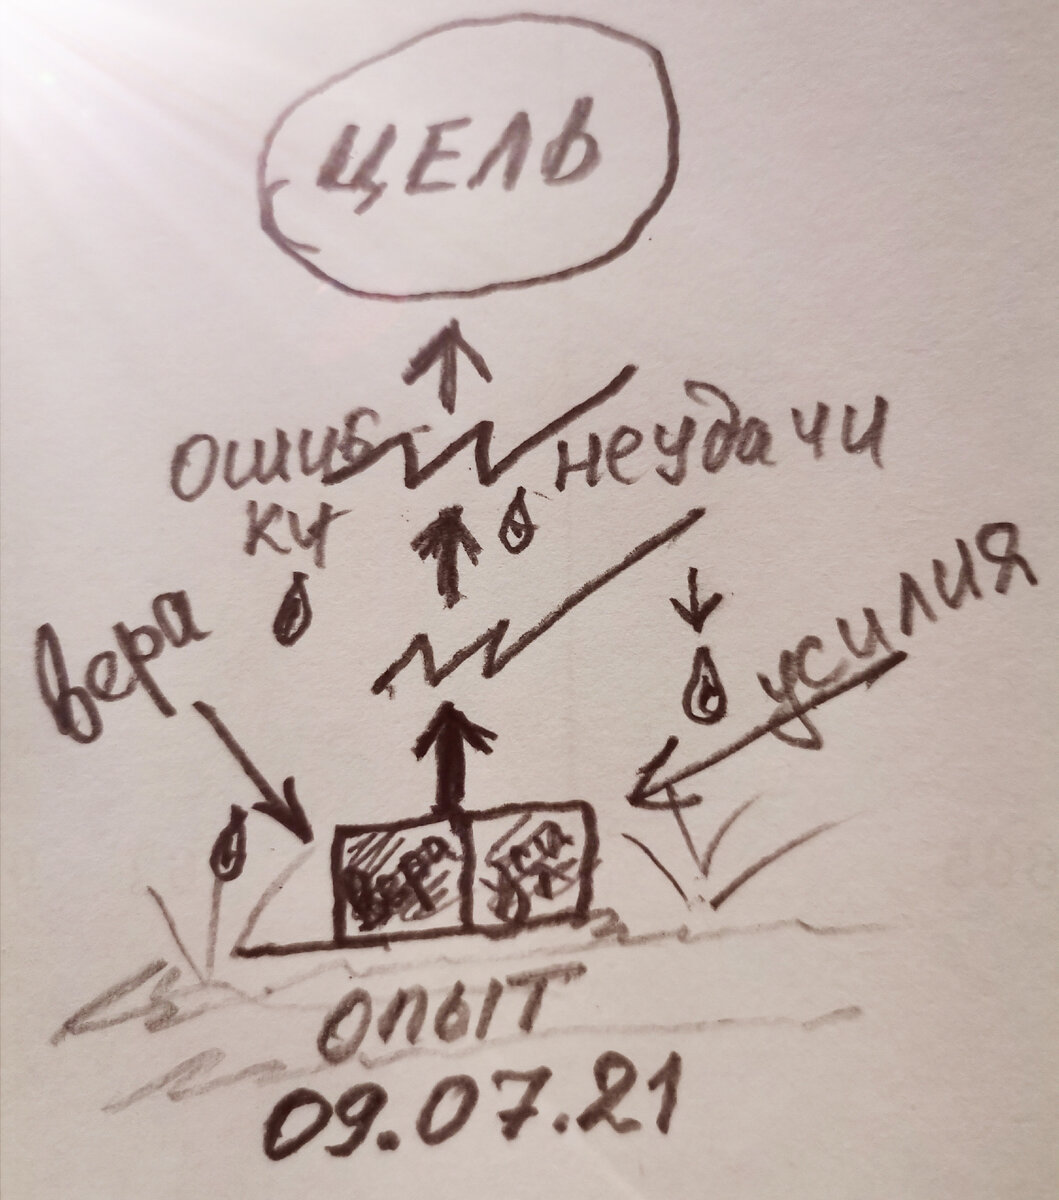 ЦЕЛЬ
ошиб
ки
неудачи
вера
усилия
вера
опыт
09.07.21